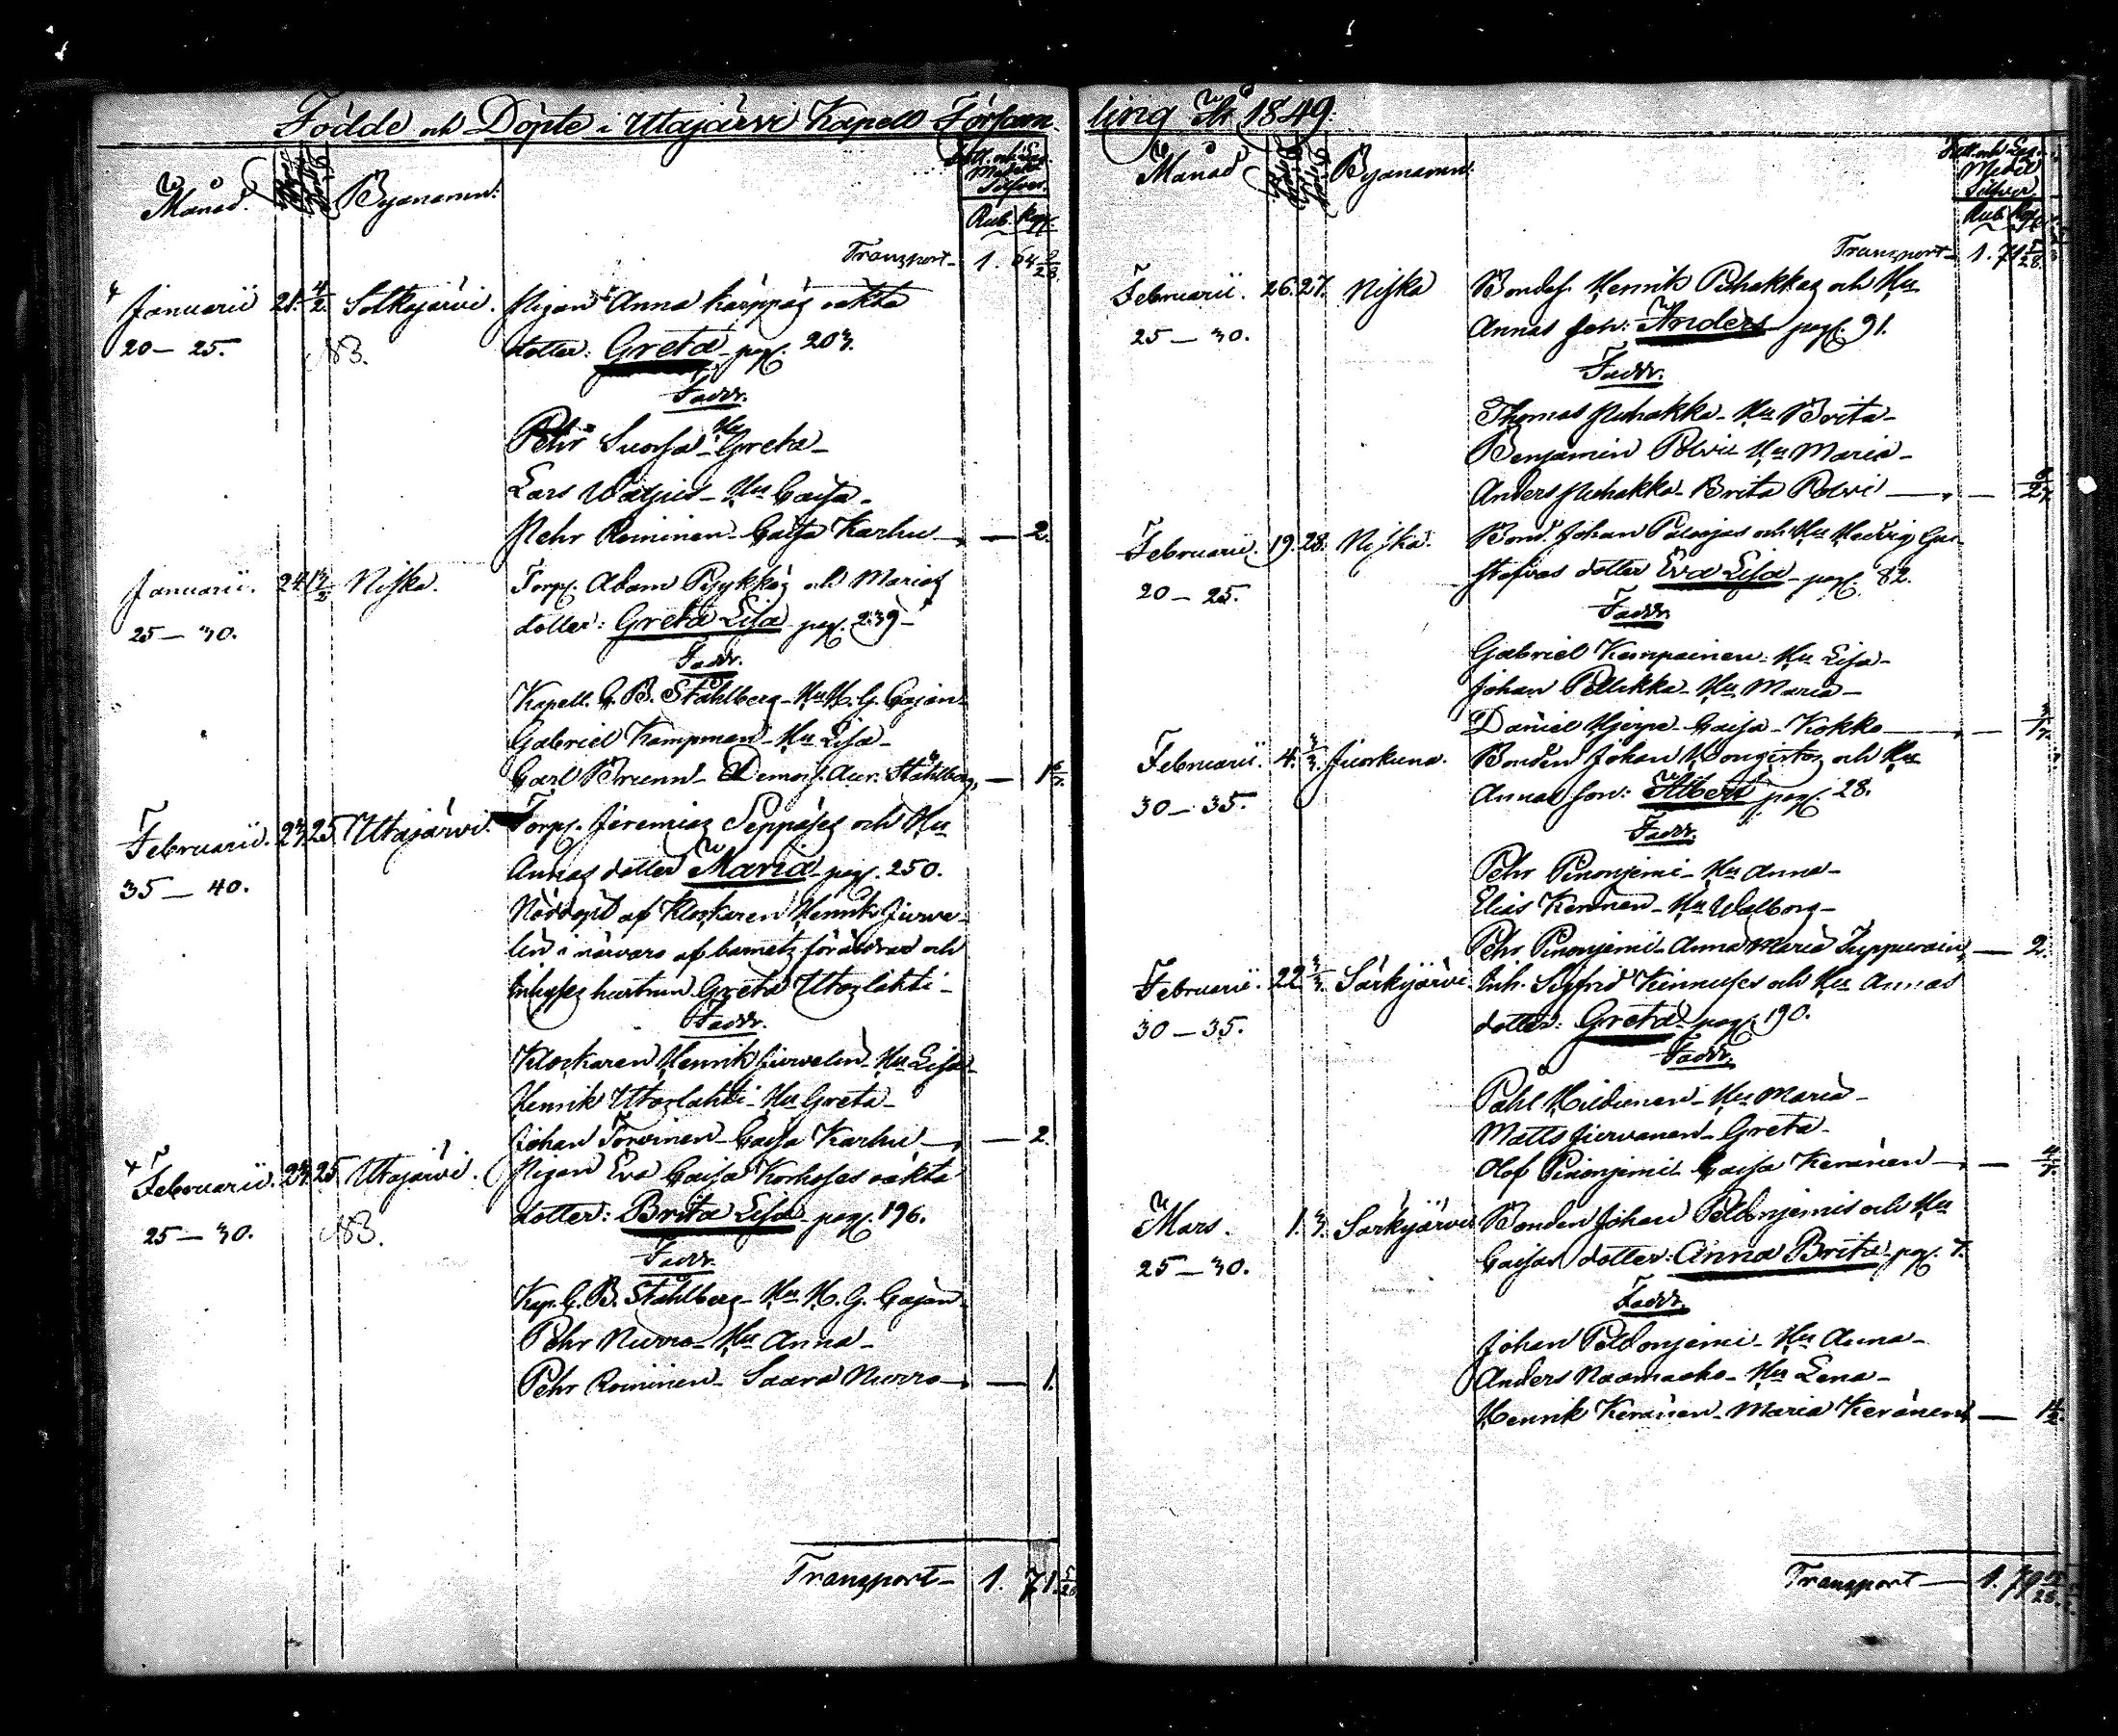 Födde och Döpte i Utajärvi Kapell Församling År 1849.
Månad. Byanamn:
Rub. Kop.
Transport 1. 64
Januarii 21. 4/2. Sotkajärvi. Pigan Anna Karppas oäkta
20 – 25. NB. dotter: Greta pag. 203.
Faddr.
Pehr Suorsa Hu Greta
Lars Hu Caisa
Pehr Roininen Caisa Karhu — 2.
Januarii. 24 Niska. Torp. Adam Pyykkös och Marias
25 – 30. dotter: Greta Lisa pag. 239
Faddr.
Kapell. G. B. Ståhlberg Hu H. G. Cajan
Gabriel Kampman Hu Lisa
Carl Brunn Demois. Aur. Ståhlberg
Februarii. 23 25 Utajärvi. Torp. Jeremias Seppäses och Hu
35 – 40. Annas dotter Maria pag. 250.
Nöddöpt af Klockaren Henrik Jurve-
lin i närvaro af barnets föräldrar och
Inhyses hustrun Greta Utoslahti
Faddr.
Klockaren Henrik Jurvelin Hu Lisa
Henrik Utoslahti Hu Greta
Johan Torvinen Caisa Karhu — 2.
Februarii. 23 25 Utajärvi. Pigan Eva Caisa Korhoses oäkta
25 – 30. NB. dotter: Brita Lisa pag. 196.
Faddr.
Kap. G. B. Ståhlberg Hu H. G. Cajan
Pehr Nurro Hu Anna
Pehr Roininen Saara Nurro — 1.
Transport 1. 71 5/28
Månad Byanamn:
Medel
Silfver
Rub. Kop.
Transport 1. 71 5/28.
Februarii. 26. 27. Niska Bondes. Henrik Puhakkas och Hu
25 – 30. Annas son: Anders pag. 91.
Faddr.
Thomas Puhakka Hu Brita
Benjamin Polvi Hu Maria
Anders Puhakka Brita Polvi
Februarii. 19. 28. Niska. Bond. Johan Paloojas och Hu Hedvig Gu-
20 – 25. stafvas dotter Eva Lisa pag. 82.
Faddr.
Gabriel Kampainen Hu Lisa
Johan Pellikka Hu Maria
Daniel Hjerpe Caisa Kokko
Februarii. 4. 3/3. Juorkuna. Bonden Johan och Hu
30 – 35. Annas son: Albert pag. 28.
Faddr.
Pehr Pinoniemi Hu Anna
Elias Keränen Hu Walborg
Pehr Pinoniemi Anna Maria — 2.
Februarii. 22 3/3. Särkijärvi Inh. Sigfrid Kinnuses och Hu Annas
30 – 35. dotter: Greta pag. 190.
Faddr.
Påhl Hildunen Hu Maria
Matts Jurvanen Greta
Olof Pinoniemi Caisa Keränen 4/7.
Mars. 1. 3. Särkijärvi Bonden Johan Peldoniemis och Hu
25 – 30. Caisas dotter: Anna Brita pag. 7.
Faddr.
Johan Peldoniemi Hu Anna
Anders Naamanko Hu Lena
Henrik Keränen Maria Keränen
Transport 1. 79